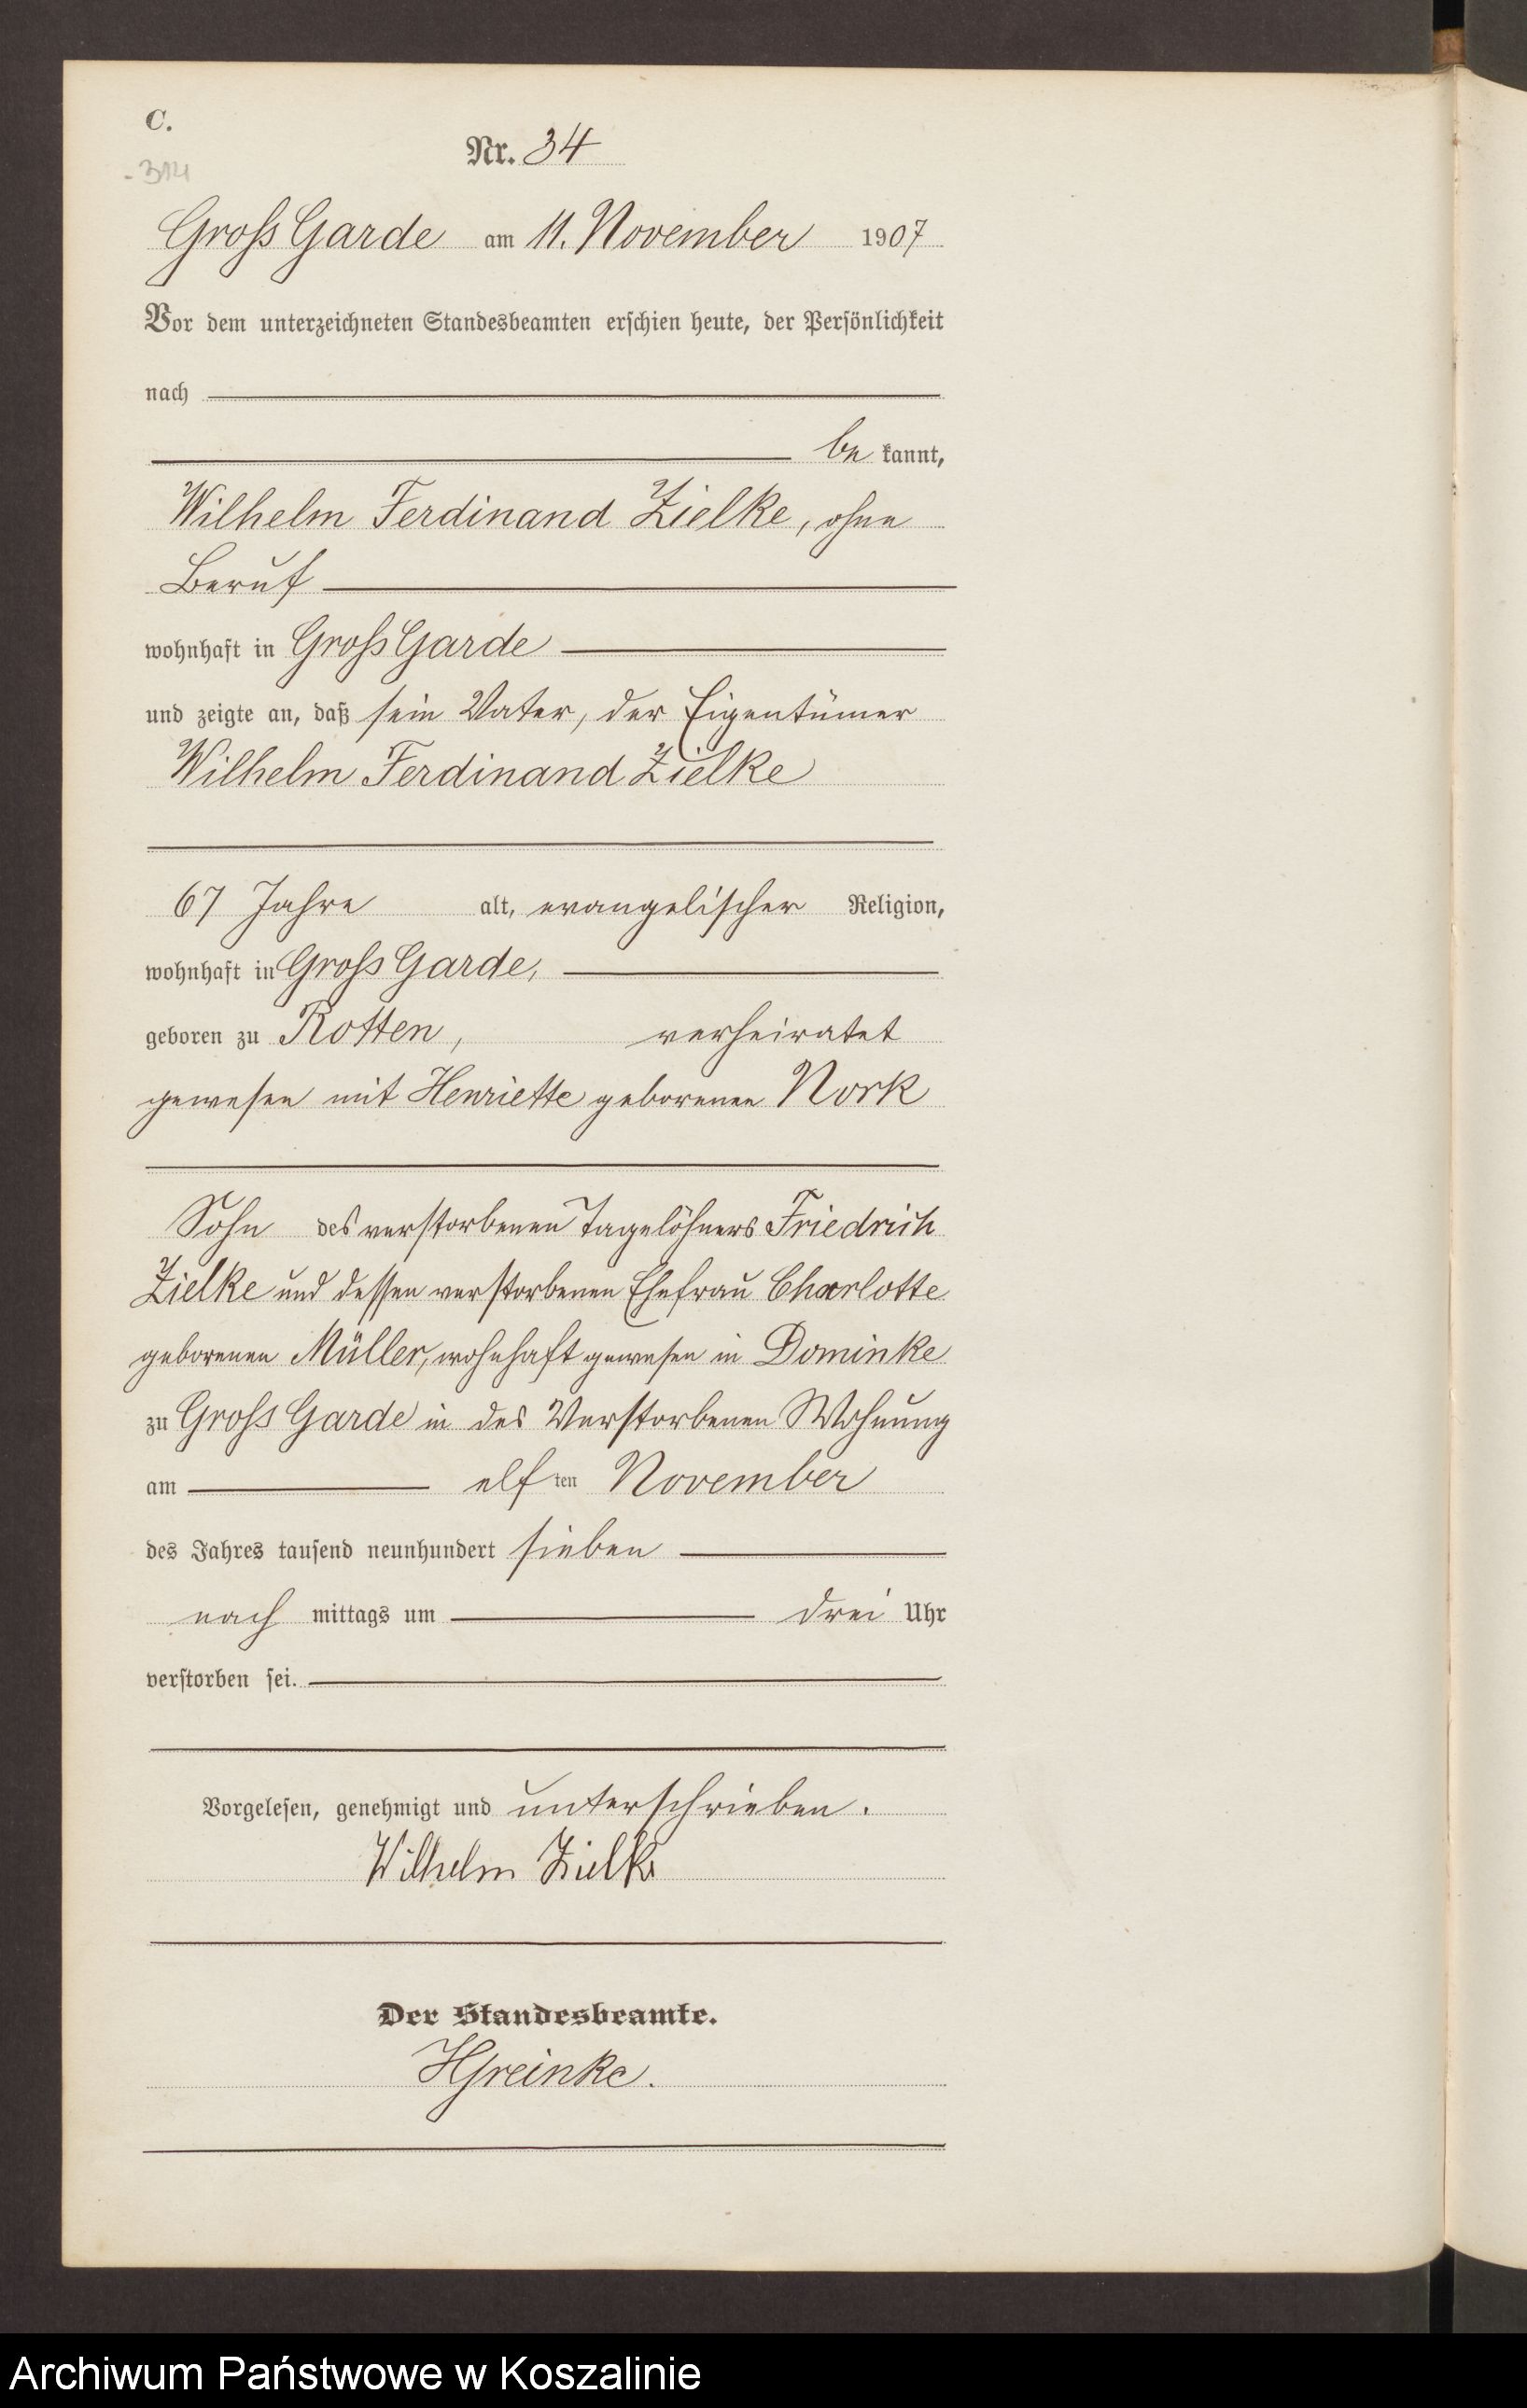 C.
Nr. 34
Gross Garde am 11. November 1907
Vor dem unterzeichneten Standesbeamten erschien heute, der Persönlichkeit
nach
be kannt,
Wilhelm Ferdinand Zielke, ohne
Beruf
wohnhaft in Gross Garde
und zeigte an, daß sein Vater, der Eigentümer
Wilhelm Ferdinand Zielke
67 Jahre alt, evangelischer Religion,
wohnhaft in Gross Garde,
geboren zu Rotten, verheiratet
gewesen mit Henriette geborenen Nork
Sohn des verstorbenen Tagelöhners Friedrich
Zielke und dessen verstorbenen Ehefrau Charlotte
geborenen Müller, wohnhaft gewesen in Dominke
zu Gross Garde in des Verstorbenen Wohnung
am elf ten November
des Jahres tausend neunhundert sieben
nach mittags um drei Uhr
verstorben sei.
Vorgelesen, genehmigt und unterschrieben.
Wilhelm Zielke
Der Standesbeamte.
Archiwum Państwowe w Koszalinie